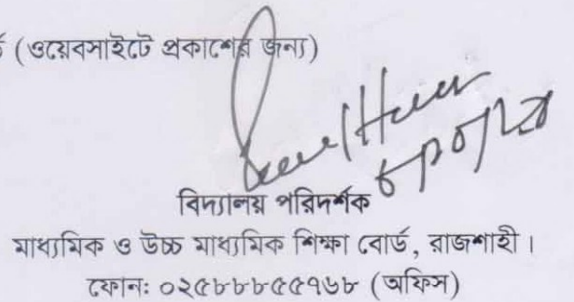 (ওয়েবসাইটে প্রকাশের জন্য)
বিদ্যালয় পরিদর্শক
মাধ্যমিক ও উচ্চ মাধ্যমিক শিক্ষা বোর্ড, রাজশাহী।
ফোনঃ ০২৫৮৮৮৫৫৭৬৮ (অফিস)